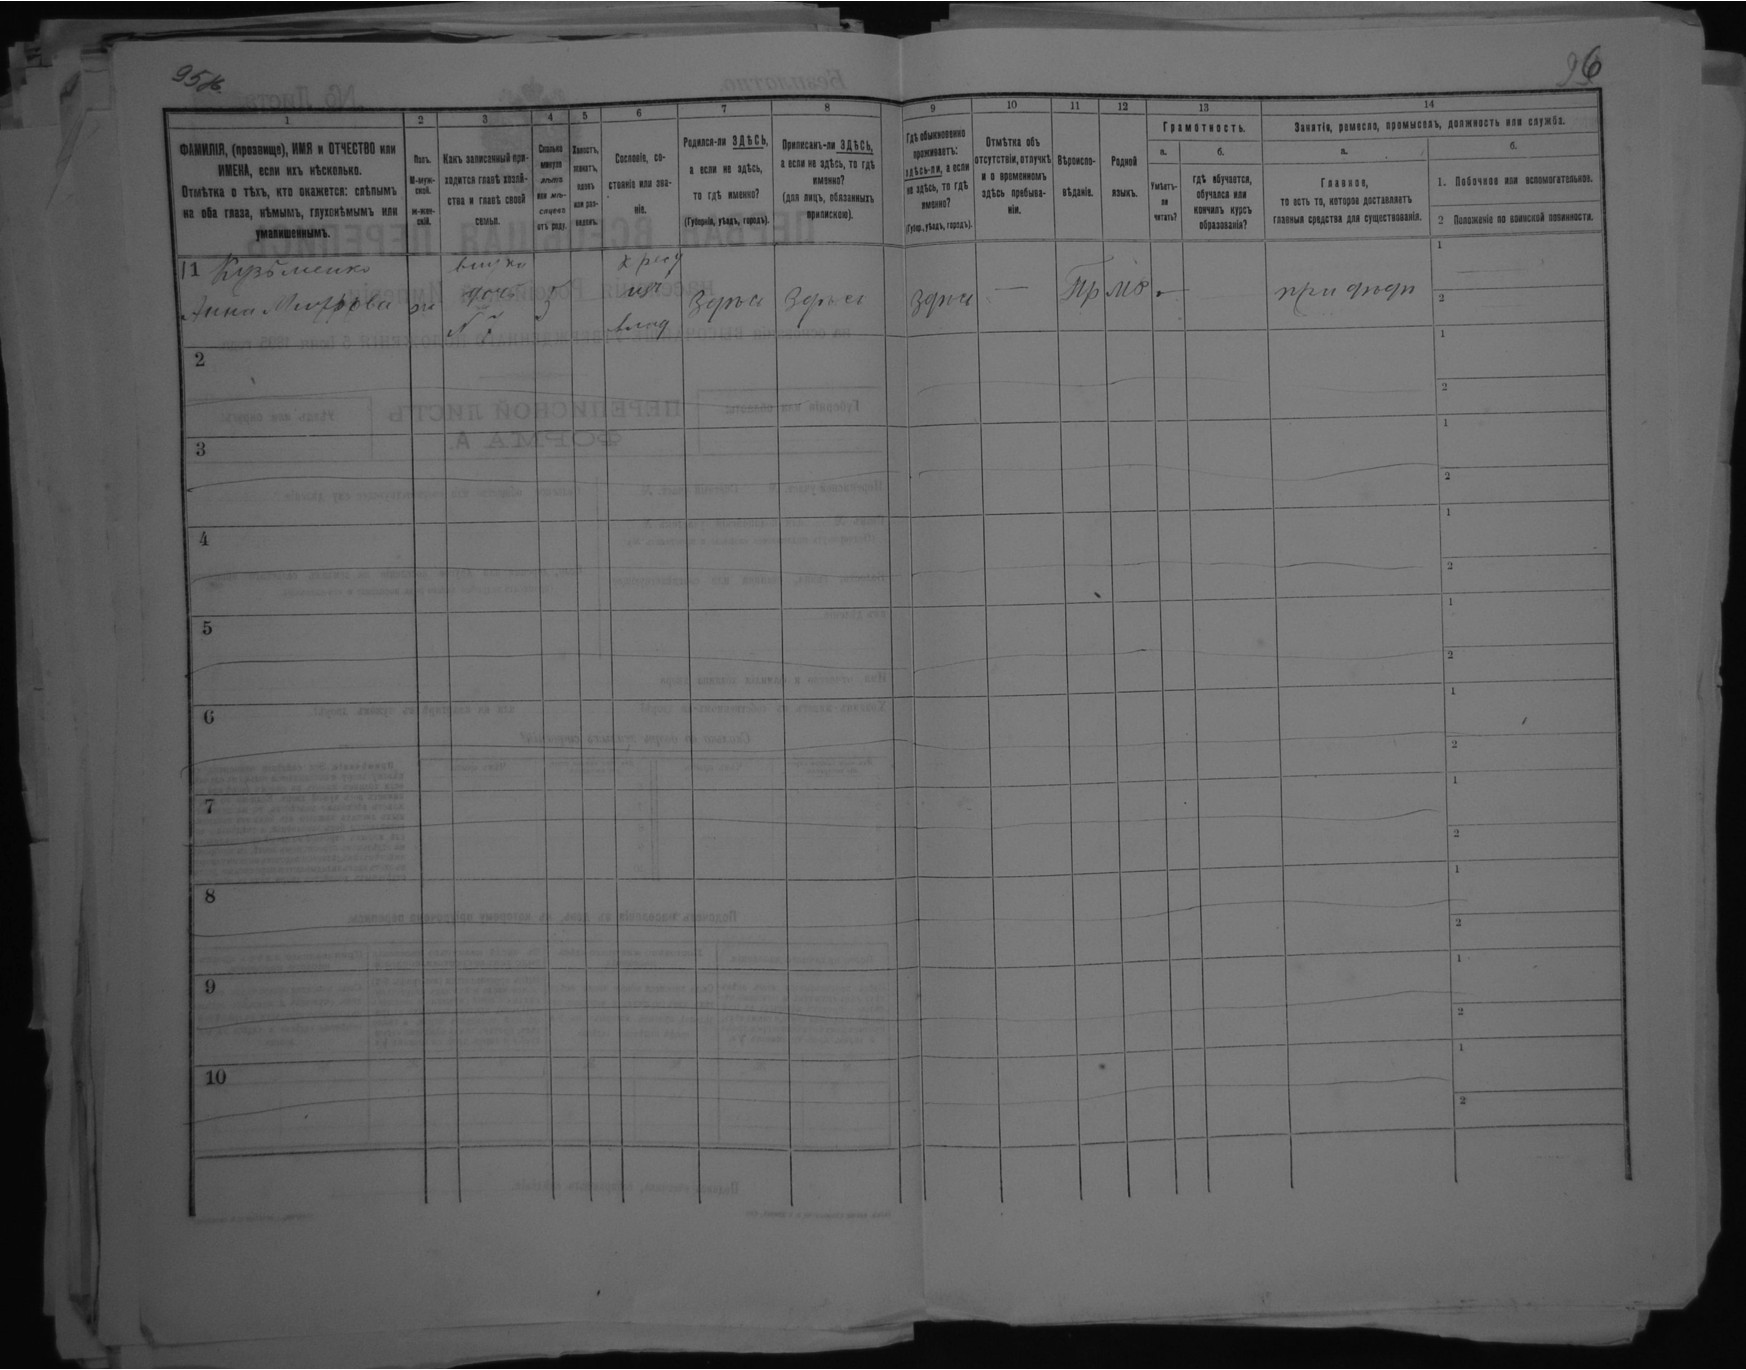 95 об.
96
1
2
3
4
5
6
7
8
9
10
11
12
13
14
ФАМИЛІЯ, (прозвище), ИМЯ и ОТЧЕСТВО или
ИМЕНА, если ихъ нѣсколько.
Отмѣтка о тѣхъ, кто окажется: слѣпымъ
на оба глаза, нѣмымъ, глухонѣмымъ или
умалишеннымъ.
Полъ.
М-муж-
ской.
ж-жен-
скій.
Какъ записанный при-
ходится главѣ хозяй-
ства и главѣ своей
семьи.
Сколько
минуло
лѣтъ
или мѣ-
сяцевъ
отъ роду.
Холостъ,
женатъ,
вдовъ
или раз-
веденъ.
Сословіе, со-
стояніе или зва-
ніе.
Родился-ли ЗДѢСЬ,
а если не здѣсь,
то гдѣ именно?
(Губернія, уѣздъ, городъ).
Приписанъ-ли ЗДѢСЬ,
а если не здѣсь, то гдѣ
именно?
(для лицъ, обязанныхъ
припискою).
Гдѣ обыкновенно
проживаетъ:
здѣсь-ли, а если
не здѣсь, то гдѣ
именно?
(Губер., уѣздъ, городъ).
Отмѣтка объ
отсутствіи, отлучкѣ
и о временномъ
здѣсь пребыва-
ніи.
Вѣроиспо-
вѣданіе.
Родной
языкъ.
Грамотность.
а.
Умѣетъ-
ли
читать?
б.
гдѣ обучается,
обучался или
кончилъ курсъ
образованія?
Занятія, ремесло, промыселъ, должность или служба.
а.
Главное,
то есть то, которое доставляетъ
главныя средства для существованія.
б.
1. Побочное или вспомогательное.
2 Положеніе по воинской повинности.
1 Кузьменко
Анна
ж
внучка
дочь
5
крест
влад
Здѣсь
Здѣсь
Здѣсь
—
Пр
Мо
1
2
2
1
2
3
1
2
4
1
2
5
1
2
6
1
2
7
1
2
8
1
2
9
1
2
10
1
2